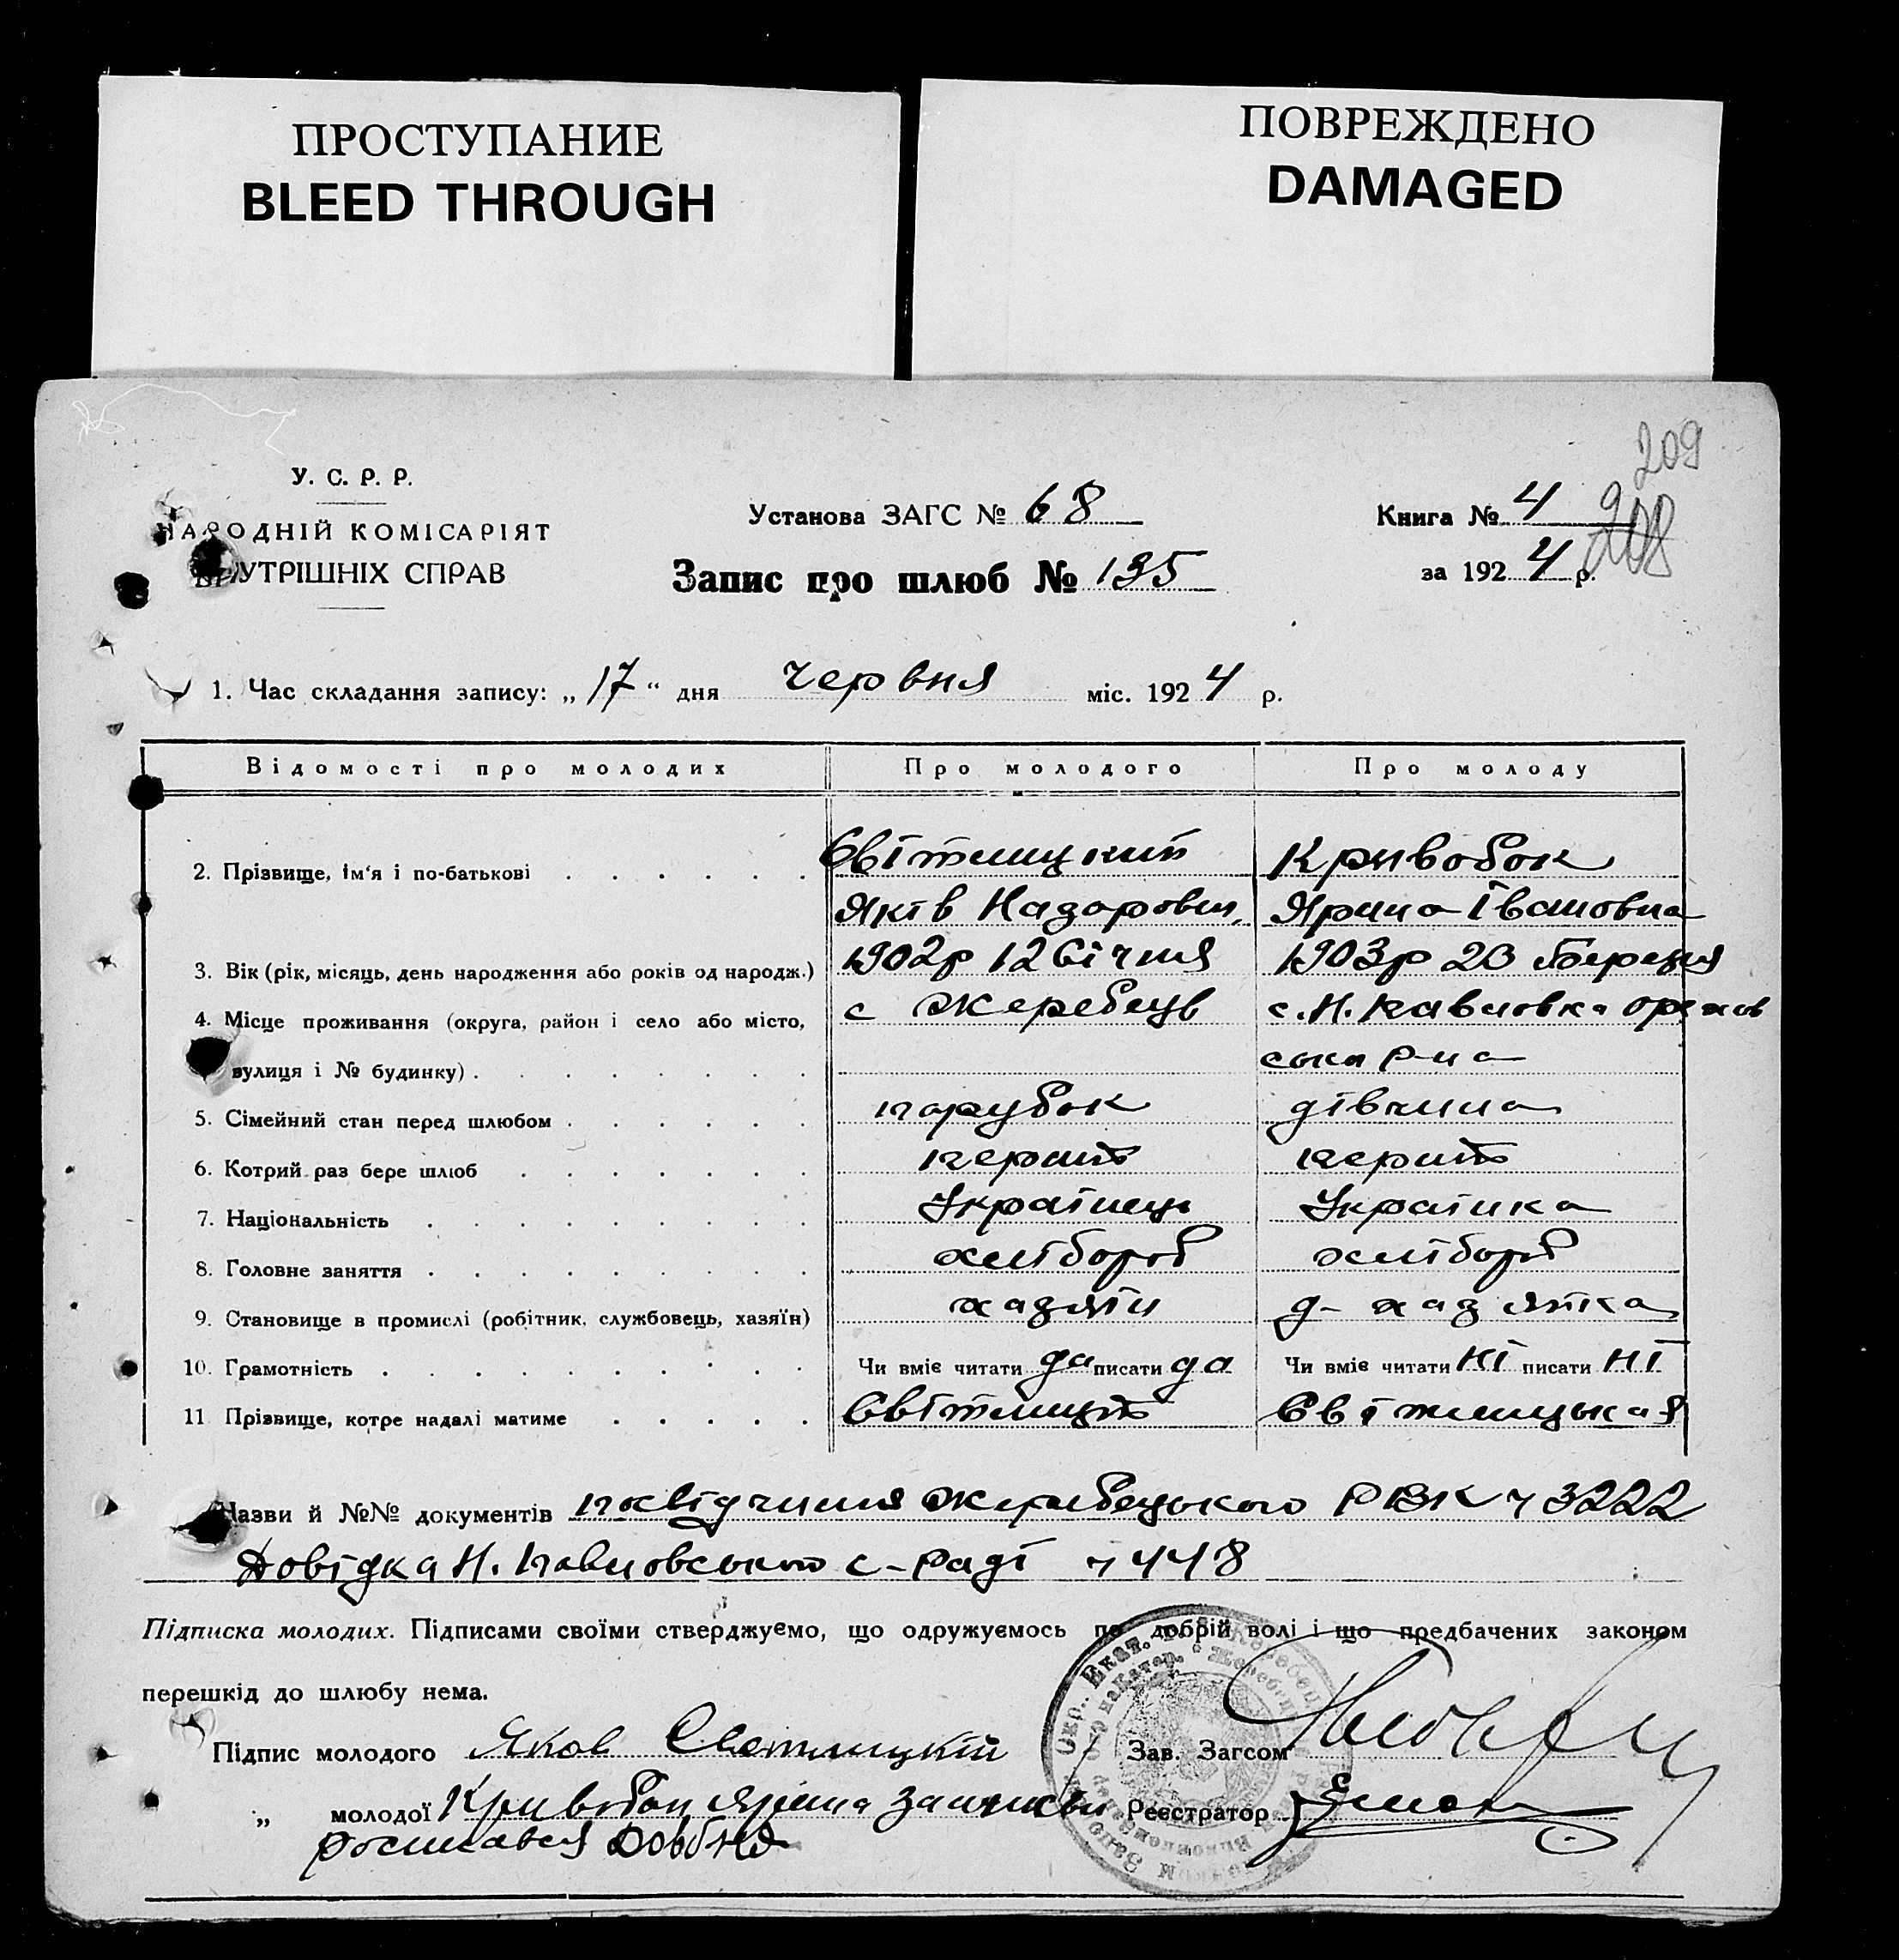 ПРОСТУПАНИЕ
BLEED THROUGH
ПОВРЕЖДЕНО
DAMAGED
209
208
У. С. Р. Р.
НАРОДНІЙ КОМІСАРІЯТ
ВНУТРІШНІХ СПРАВ
Установа ЗАГС № 68
Запис про шлюб № 135
Книга № 4
за 1924 р.
1. Час складання запису: „17“ дня червня міс. 1924 р.
Відомості про молодих Про молодого Про молоду
2. Прізвище, ім'я і по-батькові Світлицкий Кривобок
Яків Назарович Ярина Івановна
3. Вік (рік, місяць, день народження або років од народж.) 1902р 12 Січня 1903р 20 березня
4. Місце проживання (округа, район і село або місто, с Жеребець с. Н. Павловка Орехов
вулиця і № будинку) ська р-на
5. Сімейний стан перед шлюбом парубок дівчина
6. Котрий раз бере шлюб перший перший
7. Національність Українець Українка
8. Головне заняття хлібороб хлібороб
9. Становище в промислі (робітник, службовець, хазяїн) хазяїн д- хазяйка
10. Грамотність Чи вміє читати да писати да Чи вміє читати ні писати ні
11. Прізвище, котре надалі матиме Світлицкий Світлицькая
Назви й №№ документів посвідчиння Жеребецького РВК ч 3222
Довідка Н. Павловського с-раді ч 448
Підписка молодих. Підписами своїми стверджуємо, що одружуємось по добрій волі і що предбачених законом
перешкід до шлюбу нема.
Підпис молодого Яков Светлицкій Зав. Загсом
„ молодої Кривобок Ярина Реєстратор
росписався Довбня